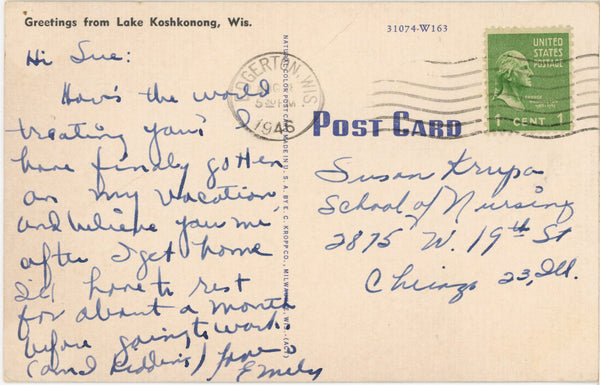 Greetings from Lake Koshkonong, Wis.
Hi Sue:
How's the world
treating you? I
have finally gotten
on my vacation,
and believe you me,
after I get home
I'd have to rest
for about a month
before going to work
(and kidding) Love
Emily
NATURAL COLOR POST CARD MADE IN U. S. A. BY E. C. KROPP CO., MILWAUKEE, WIS.
31074-W163
EDGERTON, WIS.
1946
UNITED
STATES
POSTAGE
1 CENT 1
POST CARD
Susan Krupa
School of Nursing
2875 W. 19th St
Chicago 23, Ill.